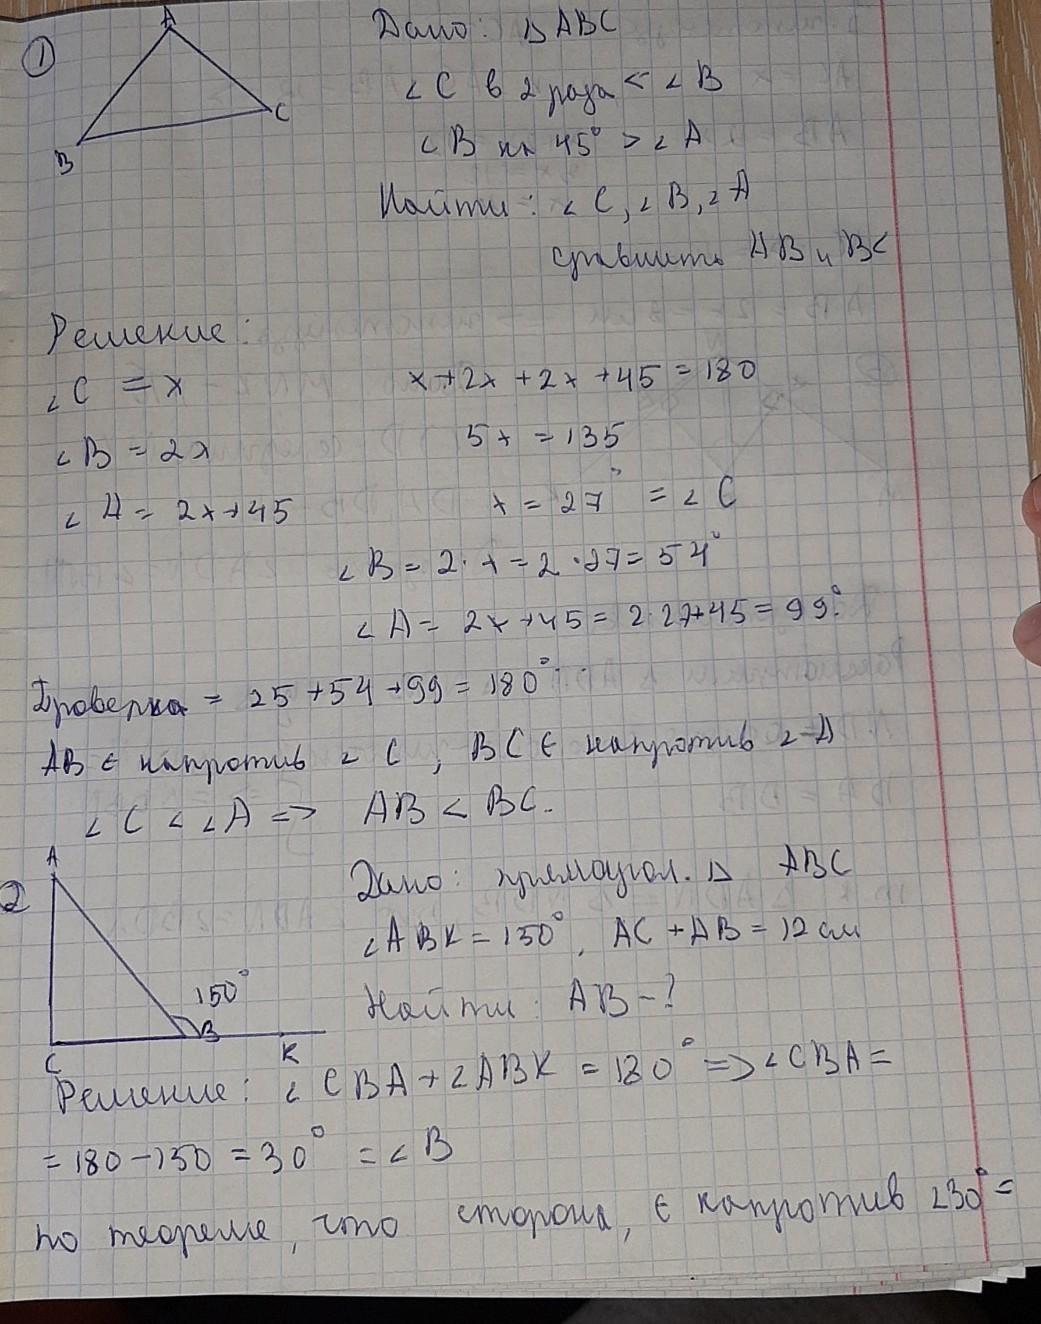 1
A
B
C
Дано: Δ ABC
∠ C в 2 раза < ∠ B
∠ B на 45° > ∠ A
Найти: ∠ C, ∠ B, ∠ A
сравнить AB и BC
Решение:
∠ C = x
x+2x+2x+45=180
∠ B = 2x
5x = 135
∠ A = 2x+45
x = 27° = ∠ C
∠ B = 2·x = 2·27 = 54°
∠ A = 2x+45 = 2·27+45 = 99°.
Проверка = 25+54+99=180°
AB ∈ напротив ∠ C, BC ∈ напротив ∠ A
∠ C < ∠ A => AB < BC.
2
A
150°
B
C
K
Дано: прямоугол. Δ ABC
∠ ABK = 150°, AC + AB = 12 см
Найти: AB - ?
Решение: ∠ CBA + ∠ ABK = 180° => ∠ CBA =
= 180-150 = 30° = ∠ B
по теореме, что сторона, ∈ напротив ∠30° =